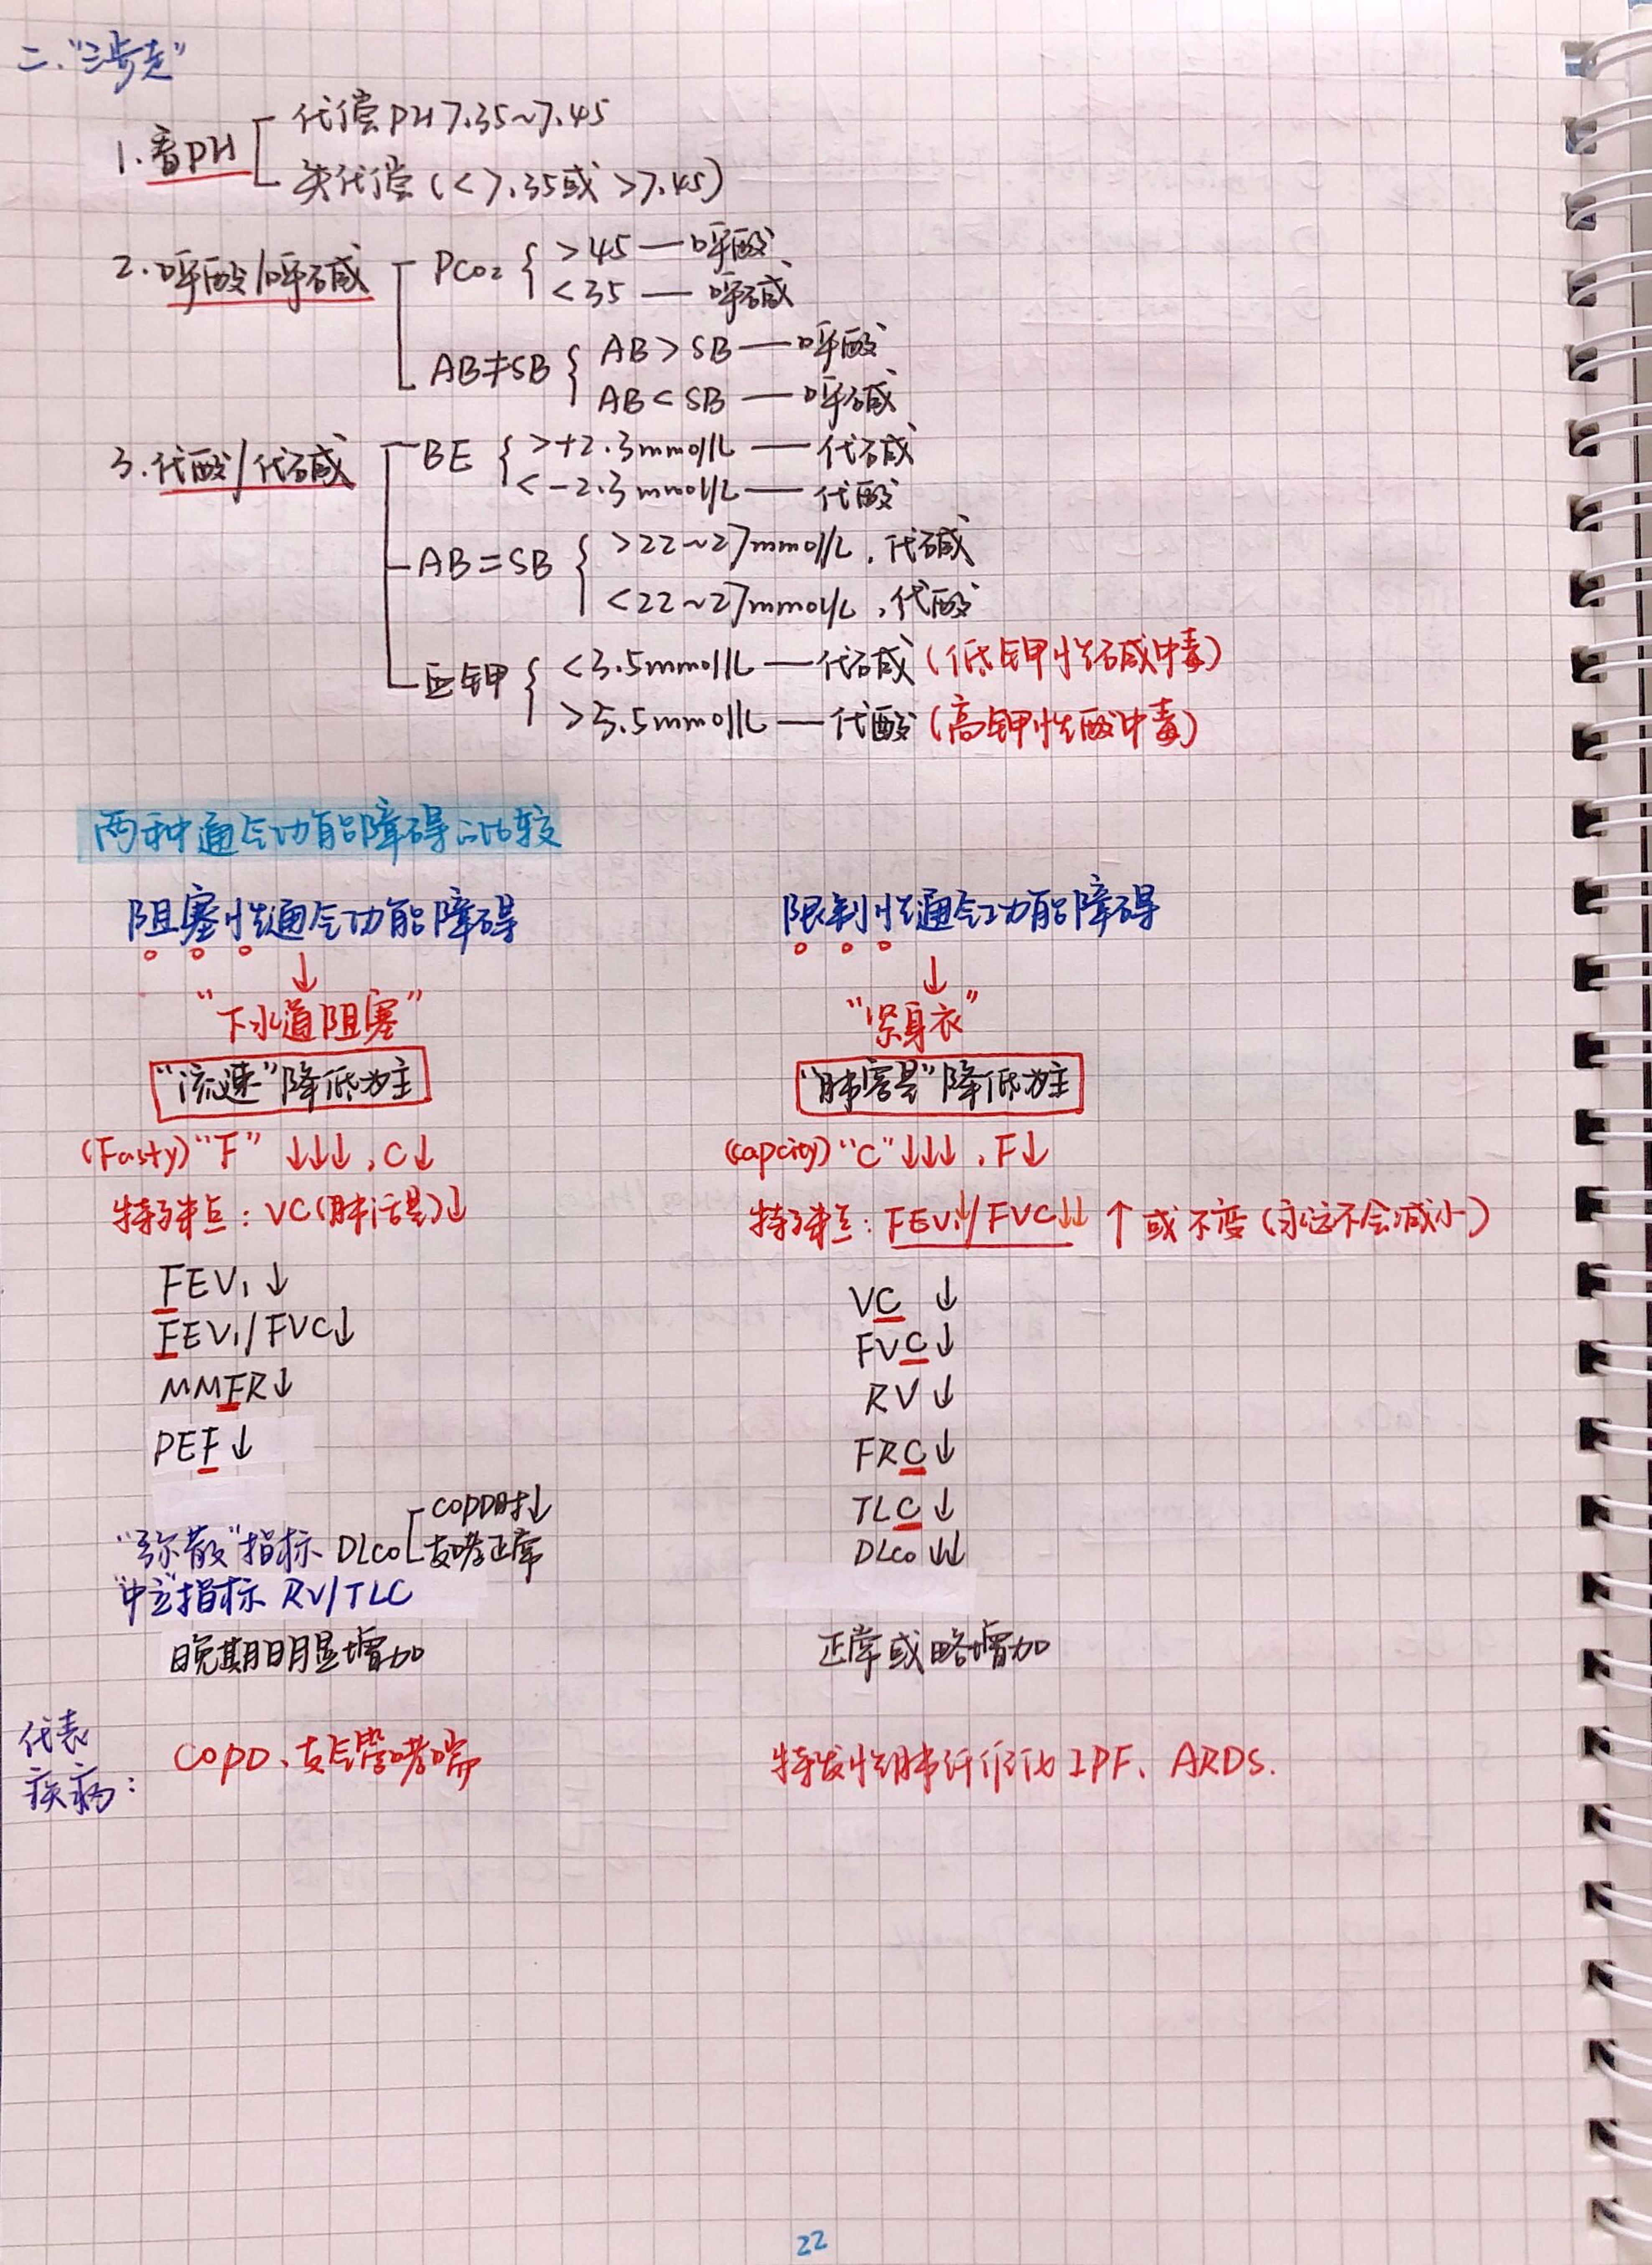 二.“三步走”
1.看PH
代偿PH7.35~7.45
失代偿(<7.35或>7.45)
2.呼酸/呼碱
PCO₂ { >45—呼酸
<35—呼碱
AB≠SB { AB>SB—呼酸
AB<SB—呼碱
3.代酸/代碱
BE { >+2.3mmol/L—代碱
<-2.3mmol/L—代酸
AB=SB { >22~27mmol/L,代碱
<22~27mmol/L,代酸
血钾 { <3.5mmol/L—代碱(低钾性碱中毒)
>5.5mmol/L—代酸(高钾性酸中毒)
两种通气功能障碍的比较
阻塞性通气功能障碍
↓
“下水道阻塞”
“流速”降低为主
(Fasty)“F”↓↓↓,C↓
特殊点:VC(肺活量)↓
FEV₁↓
FEV₁/FVC↓
MMFR↓
PEF↓
“弥散”指标 DLCO
COPD时↓
支哮正常
“中立”指标 RV/TLC
晚期明显增加
限制性通气功能障碍
↓
“紧身衣”
“肺容量”降低为主
(capcity)“C”↓↓↓,F↓
特殊点:FEV₁↓/FVC↓↓ ↑或不变(永远不会减小)
VC↓
FVC↓
RV↓
FRC↓
TLC↓
DLCO↓↓
正常或略增加
代表
疾病:
COPD、支气管哮喘
特发性肺纤维化IPF、ARDS.
22